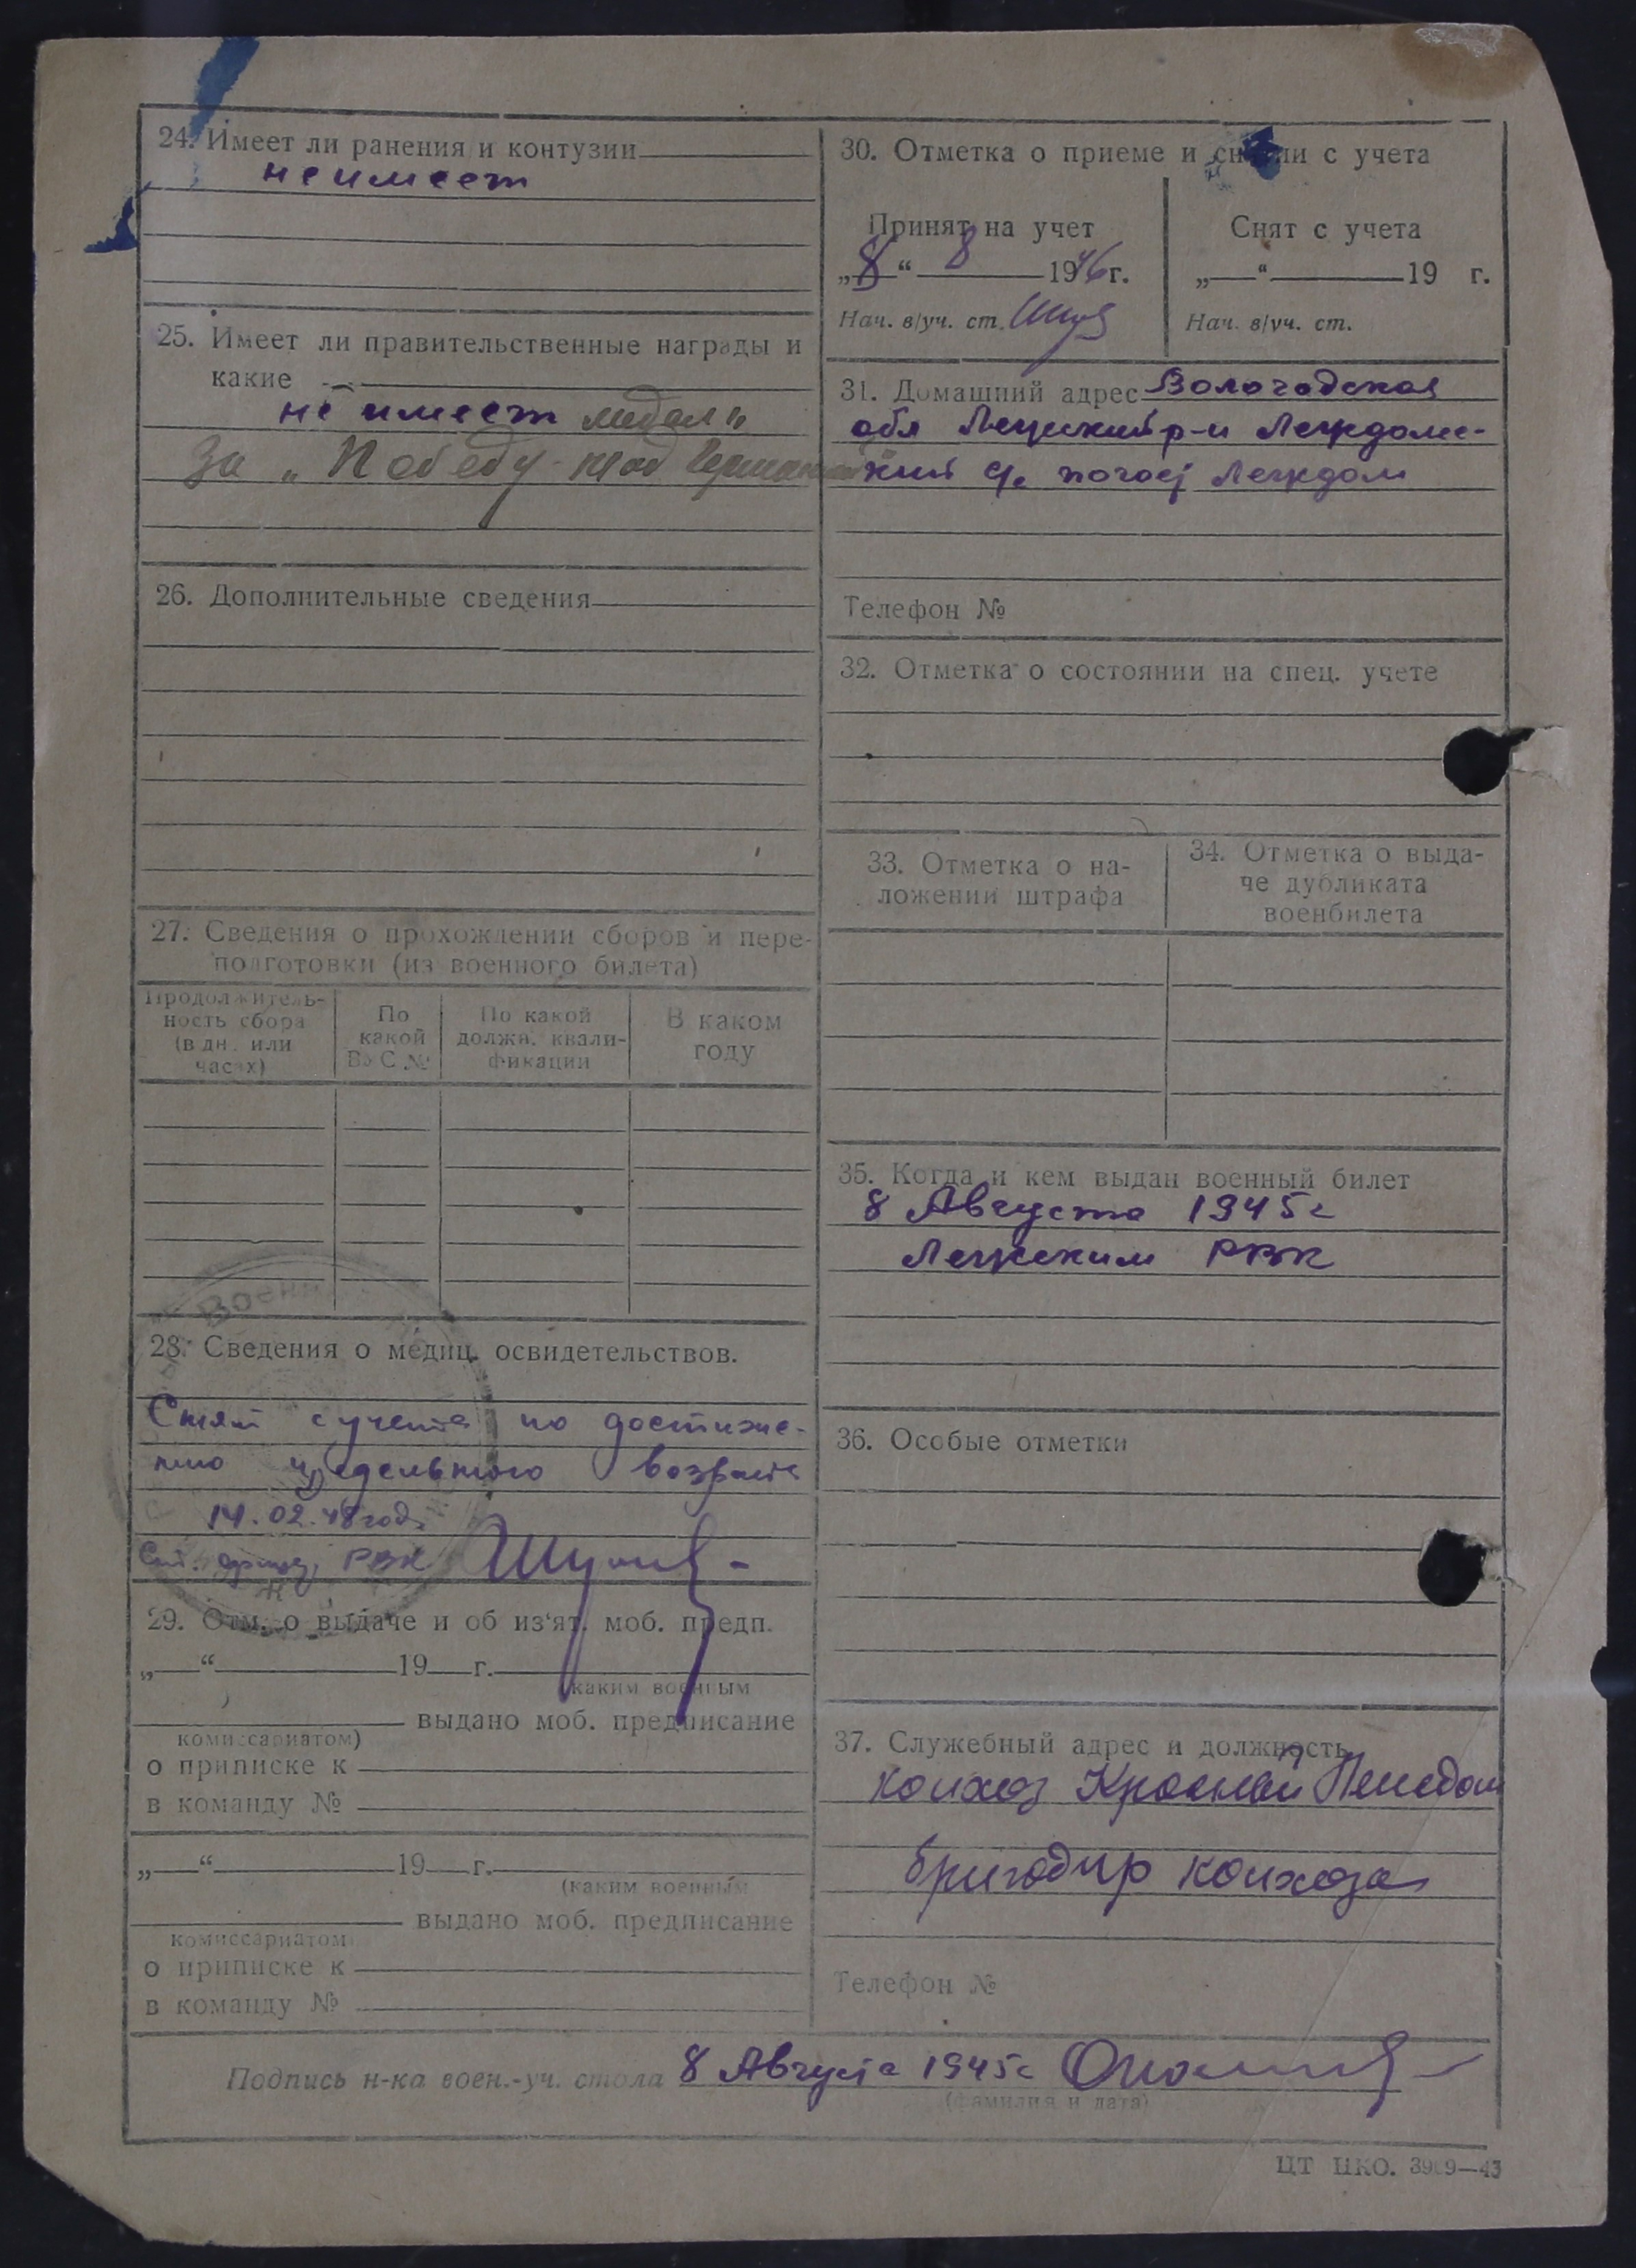 24. Имеет ли ранения и контузии
не имеет
25. Имеет ли правительственные награды и
какие
не имеет медаль
За „Победу над Германией"
26. Дополнительные сведения
27. Сведения о прохождении сборов и пере-
подготовки (из военного билета)
Продолжитель-
ность сбора
(в дн. или
часах)
По
какой
ВУС №
По какой
должн. квали-
фикации
В каком
году
Военн
28. Сведения о медиц. освидетельствов.
Снят с учета по достиже-
нию предельного возраста
14.02.48 год
РВК
29. Отм. о выдаче и об из‘ят. моб. предп.
„ “ 19 г.
(каким военным
комиссариатом)
выдано моб. предписание
о приписке к
в команду №
„ “ 19 г.
(каким военным
комиссариатом)
выдано моб. предписание
о приписке к
в команду №
30. Отметка о приеме и снятии с учета
Принят на учет
„8“ 8 1946 г.
Нач. в/уч. ст.
Снят с учета
„ “ 19 г.
Нач. в/уч. ст.
31. Домашний адрес Вологодская
обл Лежский р-н Леждомс-
кий с/с погост Леждом
Телефон №
32. Отметка о состоянии на спец. учете
33. Отметка о на-
ложении штрафа
34. Отметка о выда-
че дубликата
военбилета
35. Когда и кем выдан военный билет
8 Августа 1945 г
Лежским РВК
36. Особые отметки
37. Служебный адрес и должность
колхоз Красный
бригадир колхоза
Телефон №
Подпись н-ка воен.-уч. стола 8 Августа 1945 г
(фамилия и дата)
ЦТ НКО.